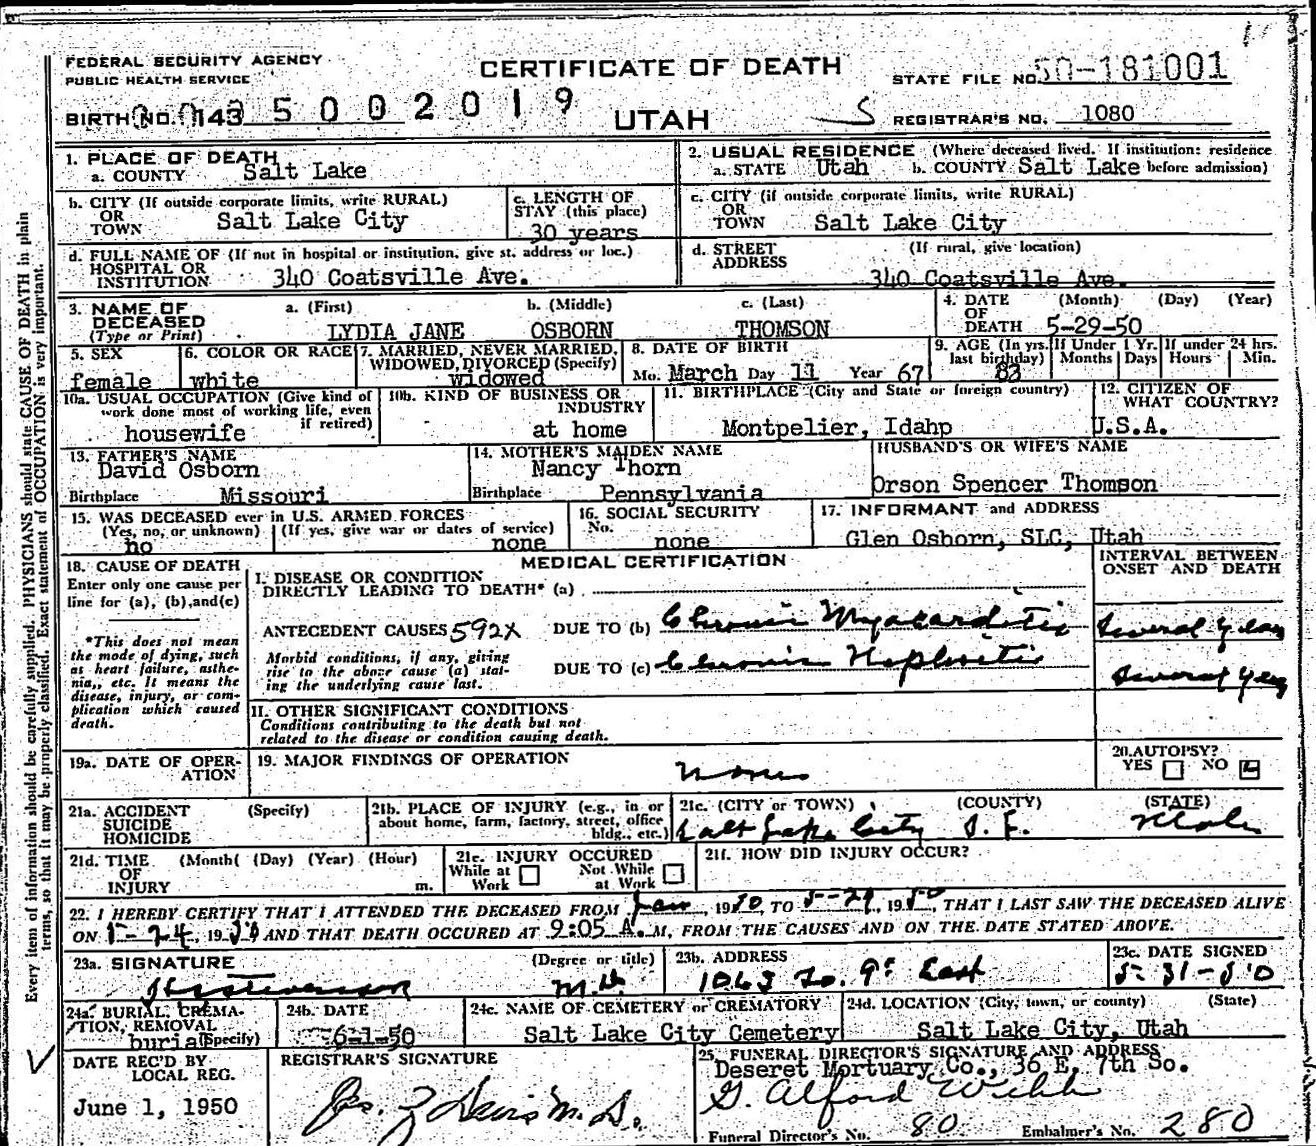 FEDERAL SECURITY AGENCY
PUBLIC HEALTH SERVICE
CERTIFICATE OF DEATH
STATE FILE NO. 50-181001
BIRTH NO. 143 5002019
UTAH
S
REGISTRAR'S NO. 1080
Every item of information should be carefully supplied. PHYSICIANS should state CAUSE OF DEATH in plain
terms, so that it may be properly classified. Exact statement of OCCUPATION is very important.
1. PLACE OF DEATH
a. COUNTY Salt Lake
2. USUAL RESIDENCE (Where deceased lived. If institution: residence
a. STATE Utah b. COUNTY Salt Lake before admission)
b. CITY (If outside corporate limits, write RURAL)
OR
TOWN Salt Lake City
c. LENGTH OF
STAY (this place)
30 years
c. CITY (if outside corporate limits, write RURAL)
OR
TOWN Salt Lake City
d. FULL NAME OF (If not in hospital or institution, give st. address or loc.)
HOSPITAL OR
INSTITUTION 340 Coatsville Ave.
d. STREET (If rural, give location)
ADDRESS 340 Coatsville Ave.
3. NAME OF DECEASED
(Type or Print)
a. (First) b. (Middle) c. (Last)
LYDIA JANE OSBORN THOMSON
4. DATE (Month) (Day) (Year)
OF
DEATH 5-29-50
5. SEX
female
6. COLOR OR RACE
white
7. MARRIED, NEVER MARRIED,
WIDOWED, DIVORCED (Specify)
widowed
8. DATE OF BIRTH
Mo. March Day 11 Year 67
9. AGE (In yrs. last birthday)
83
If Under 1 Yr. Months Days
If under 24 hrs. Hours Min.
10a. USUAL OCCUPATION (Give kind of
work done most of working life, even
if retired)
housewife
10b. KIND OF BUSINESS OR
INDUSTRY
at home
11. BIRTHPLACE (City and State or foreign country)
Montpelier, Idahp
12. CITIZEN OF
WHAT COUNTRY?
U.S.A.
13. FATHER'S NAME
David Osborn
Birthplace Missouri
14. MOTHER'S MAIDEN NAME
Nancy Thorn
Birthplace Pennsylvania
HUSBAND'S OR WIFE'S NAME
Orson Spencer Thomson
15. WAS DECEASED ever in U.S. ARMED FORCES
(Yes, no, or unknown) (If yes, give war or dates of service)
no none
16. SOCIAL SECURITY
No.
none
17. INFORMANT and ADDRESS
Glen Osborn, SLC, Utah
18. CAUSE OF DEATH
Enter only one cause per
line for (a), (b), and (c)
*This does not mean
the mode of dying, such
as heart failure, asthe-
nia, etc. It means the
disease, injury, or com-
plication which caused
death.
MEDICAL CERTIFICATION
INTERVAL BETWEEN
ONSET AND DEATH
I. DISEASE OR CONDITION
DIRECTLY LEADING TO DEATH* (a)
ANTECEDENT CAUSES 592X DUE TO (b) Chronic Myocarditis Several Years
Morbid conditions, if any, giving
rise to the above cause (a) stat-
ing the underlying cause last.
DUE TO (c) Chronic Nephritis Several Years
II. OTHER SIGNIFICANT CONDITIONS
Conditions contributing to the death but not
related to the disease or condition causing death.
19a. DATE OF OPER-
ATION
19. MAJOR FINDINGS OF OPERATION
None
20. AUTOPSY?
YES NO
21a. ACCIDENT (Specify)
SUICIDE
HOMICIDE
21b. PLACE OF INJURY (e.g., in or
about home, farm, factory, street, office
bldg., etc.)
21c. (CITY or TOWN) (COUNTY) (STATE)
Salt Lake City S. L. Utah
21d. TIME (Month( (Day) (Year) (Hour)
OF
INJURY m.
21e. INJURY OCCURED
While at Work Not While at Work
21f. HOW DID INJURY OCCUR?
22. I HEREBY CERTIFY THAT I ATTENDED THE DECEASED FROM Jan, 1950, TO 5-29, 1950, THAT I LAST SAW THE DECEASED ALIVE
ON 5-24, 1950 AND THAT DEATH OCCURED AT 9:05 A.M, FROM THE CAUSES AND ON THE DATE STATED ABOVE.
23a. SIGNATURE (Degree or title)
Stevenson M D
23b. ADDRESS
1063 So. 9th East
23c. DATE SIGNED
5-31-50
24a. BURIAL, CREMA-
TION, REMOVAL
(Specify)
burial
24b. DATE
6-1-50
24c. NAME OF CEMETERY or CREMATORY
Salt Lake City Cemetery
24d. LOCATION (City, town, or county) (State)
Salt Lake City, Utah
DATE REC'D BY
LOCAL REG.
June 1, 1950
REGISTRAR'S SIGNATURE
Jas. Z Davis M.D.
25. FUNERAL DIRECTOR'S SIGNATURE AND ADDRESS
Deseret Mortuary Co., 36 E. 7th So.
G. Alford Webb
Funeral Director's No. 80 Embalmer's No. 280